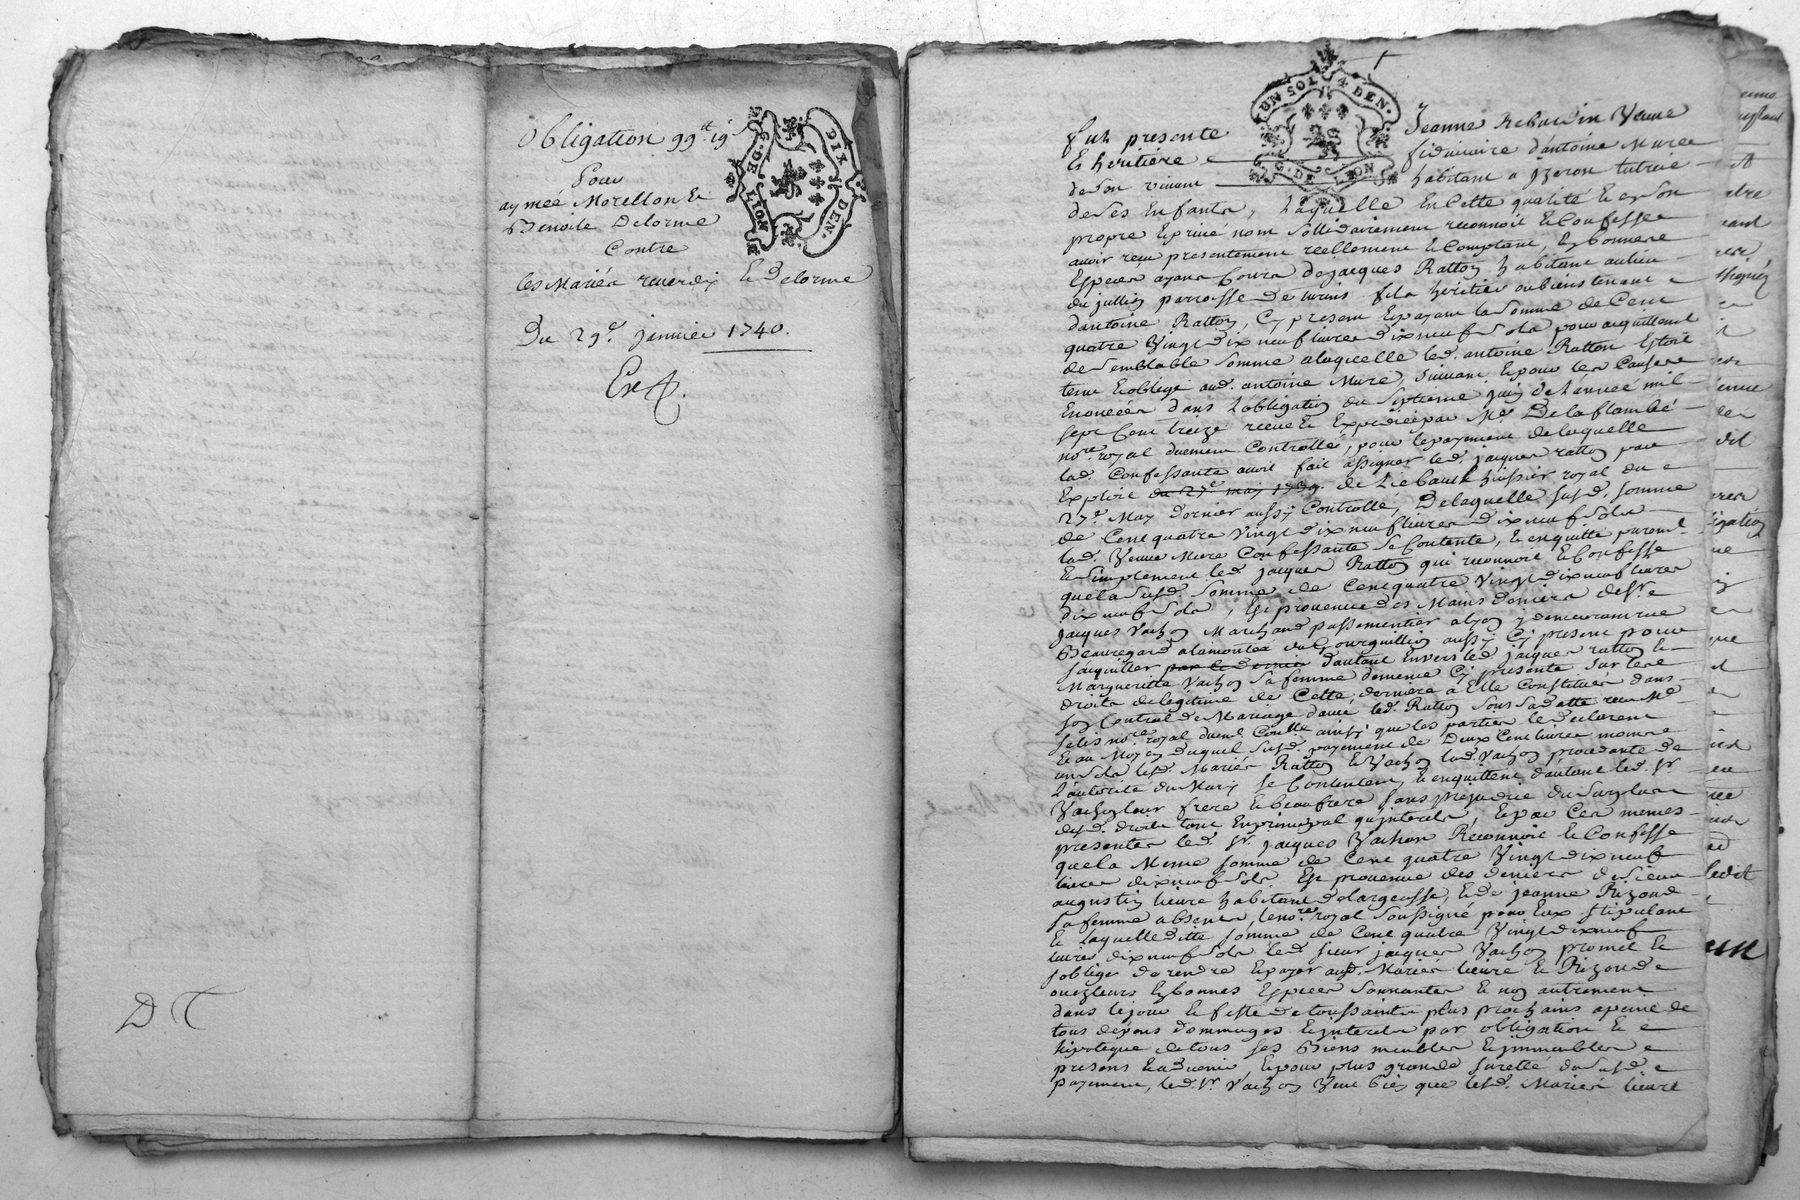 Obligation 99tt 19s
Pour
aymée Morellon &
Benoite Delorme
Contre
les Mariéz reverdy & Delorme
Du 29e janvier 1740.
D. T
G. DE LION
DIX DEN.
UN SOL 4 DEN.
G. DE LION
fut presente Jeanne Rebardin Veuve
& heritiére fiduciaire d'antoine Mure
de son vivant habitant a jzeron tutrice
de ses Enfants, Laquelle En Cette qualité & en son
propre & privé nom sollidairement reconnoit & Confesse
avoir receu presentement réellement & Comptant, En bonnes
Especes ayant Cours de jacques Ratton habitant au lieu
du jullin parroisse de turins fils heritier ou bienstenant
d'antoine Ratton, Cy present & payant la somme de Cent
quatre Vingt dixneuf livres dixneuf sols pour acquittement
de semblable somme a laquelle led. antoine Ratton Estoit
tenu & obligé aud. antoine Mure, suivant & pour les Causes
Enoncées dans L'obligation du septieme juin de L'année mil
sept Cent treize receue & Expediée par Me. De la flambé
nore. royal duement Controllé, pour le payement de laquelle
lad. Confessante avoit fait assigner led. jacques ratton par
Exploit du 27e may 1739. de Liebault huissier royal du
27e. May dernier aussy Controllé, De laquelle susd. somme
de Cent quatre Vingt dixneuf livres dixneuf sols
lad. Veuve Mure Confessante se Contente, & en quitte purement
& simplement led. jacques Ratton qui reconnoit & Confesse
que la susd. somme de Cent quatre Vingt dixneuf livres
dixneuf sols, Est provenue des Mains deniers de sr.
jacques Vachon Marchand passementier a lyon y demeurant rue
Beauregard a la montée du Gourguillon aussy Cy present pour
s'aquitter par ce dernier d'autant Envers led. jacques ratton &
Marguerite Vachon sa femme de meme Cy presente sur les
droits de légitime de Cette derniére a Elle Constitués dans
son Contrat de Mariage d'avec led. Ratton sous sa datte receu Me
nore. royal duemt. Contllé ainsy que les parties le declarent
& au Moyen duquel susd. payement de Deux Cent livres moins
un sols lesd. Mariés Ratton & Vachon lad. Vachon procedante de
L'autorité du Mary se Contentent, & en quittent d'autant led. sr.
Vachon leur frere & beaufrere sans prejudice du surplus
desd. droits tant En principal qu'interets, & par Ces memes
presentes led. sr. jacques Vachon Reconnoit & Confesse
que la Meme somme de Cent quatre Vingt dixneuf
livres dixneuf sols Est provenue des deniers de sieur
augustin lieure habitant de largeasse, & de jeanne Rizond
sa femme absents, le nore. royal soussigné pour Eux stipulant
& laquelle ditte somme de Cent quatre Vingt dixneuf
livres dixneuf sols led. sieur jacques Vachon promet &
s'oblige de rendre & payer aud. Mariés lieure & Rizond
ou ez leurs En bonnes Especes sonnantes & non autrement
dans le jour & feste de toussaints plus prochains a peine de
tous depens dommages & interets par obligation &
hipoteque de tous ses Biens meubles & jmmeubles
presens & avenir, & pour plus grande surette du susd.
payement, led. sr. Vachon Veut bien que lesd. Mariés lieure